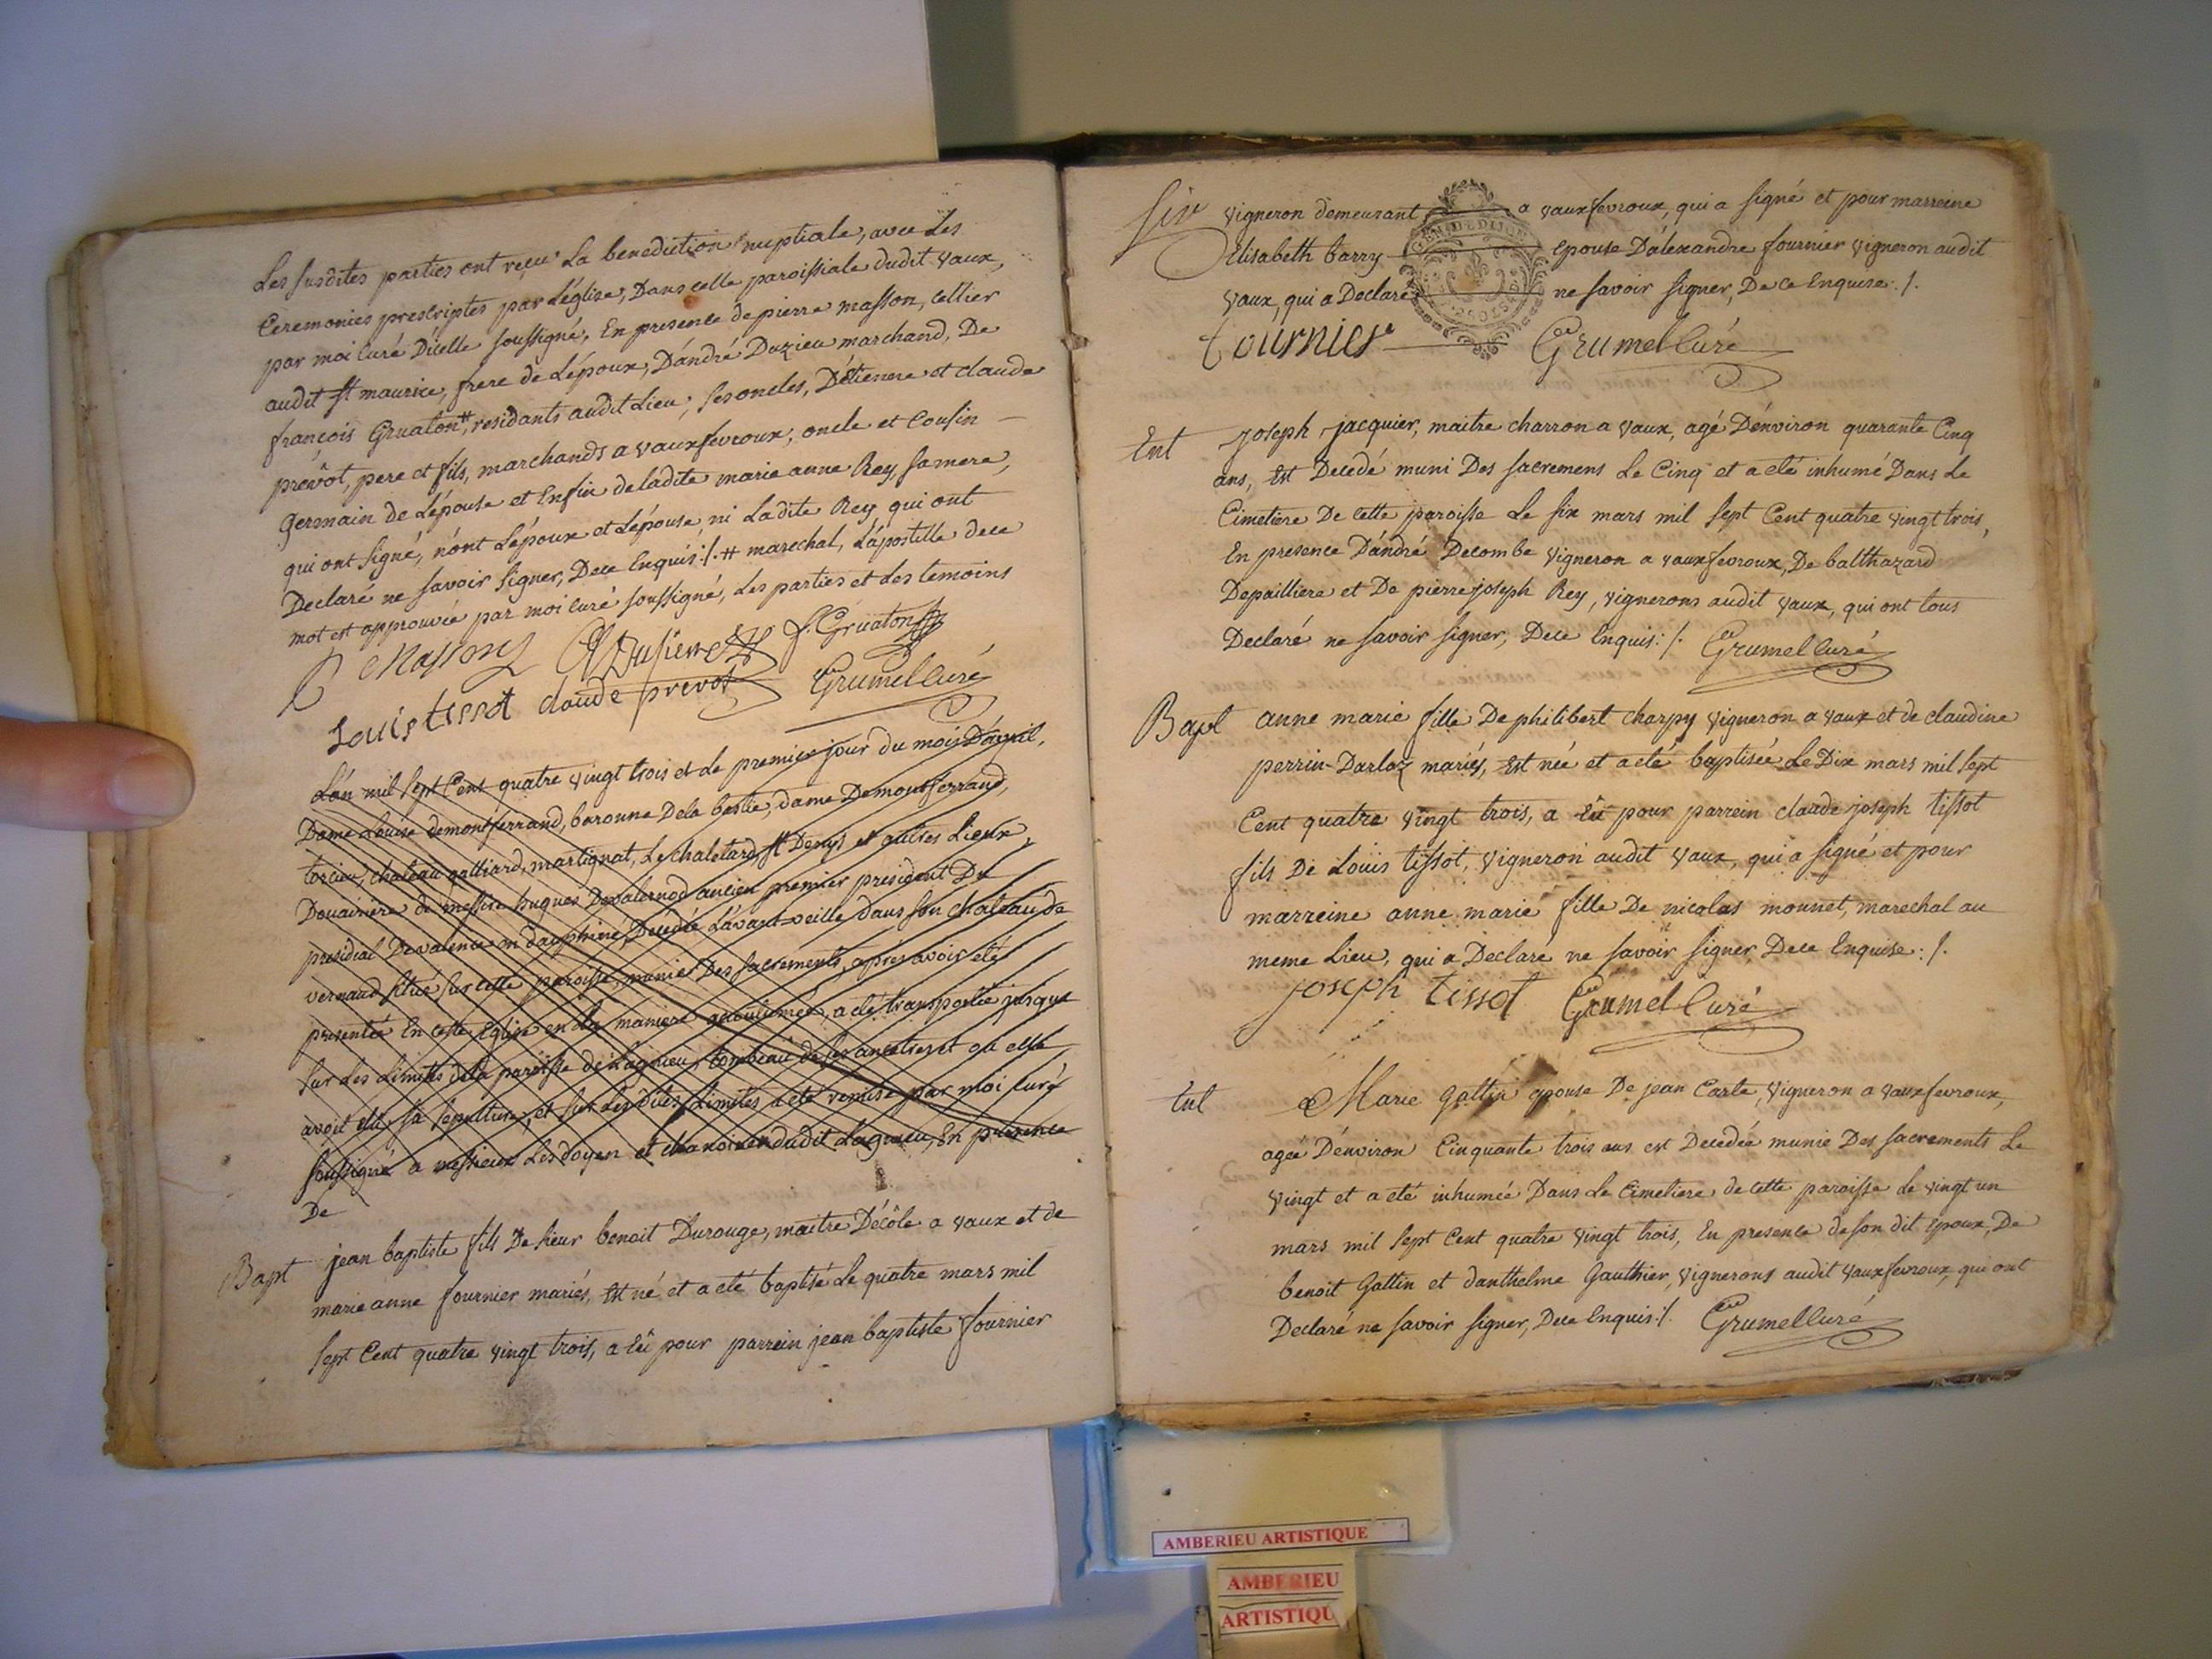 Les susdites parties ont reçu La benediction nuptiale, avec Les
Ceremonies prescriptes par L'église, Dans celle paroissiale dudit vaux,
par moi Curé D'icelle soussigné, En presence de pierre masson, cellier
audit St maurice, frere de L'époux, D'andré Duzieu marchand, De
françois Gruaton #, residants audit Lieu, ses oncles, D'étienne et claude
prevôt, pere et fils, marchands a vauxfevroux, oncle et Cousin
Germain de L'épouse et Enfin de ladite marie anne Rey, sa mere,
qui ont signé, non L'époux et L'épouse, ni La dite Rey qui ont
Declaré ne savoir signer, De ce Enquis ./. # marechal, L'apostille de ce
mot est approuvée par moi curé soussigné, Les parties et Les temoins
P Masson f. Gruaton
Louis tissot claude prevot Grumel Curé
L'an mil sept Cent quatre vingt trois et Le premier jour du mois D'avril,
Dame Louise demontferrand, baronne De la bastie, dame Demontferrand,
torcieu, chateau gailliard, martignat, Le chaletard, St Denys et autres Lieux,
Douairiere de messire hugues Devalernod ancien premier president Du
presidial De valence en dauphiné, Décédée L'avant-veille dans son chateau de
vernaud situé sur cette paroisse, munie Des sacrements, apres avoir eté
presentée En cette Eglise en la maniere accoutumée, a eté transportée jusque
sur Les Limites de la paroisse de Lagnieu, tombeau de ses ancetres et ou elle
avoit élu sa sepulture, et sur Lesdites Limites a eté remise par moi Curé
soussigné a messieurs Les doyen et chanoines dudit Lagnieu, En presence
De
Bapt jean baptiste fils De sieur benoit Durouge, maitre D'école a vaux et de
marie anne fournier mariés, Est né et a eté baptisé Le quatre mars mil
sept Cent quatre vingt trois, a Eû pour parrein jean baptiste fournier
six vigneron demeurant a vauxfevroux, qui a signé et pour marreine
Elisabeth barry Epouse D'alexandre fournier vigneron audit
vaux, qui a Declaré ne savoir signer, De ce Enquise ./.
fournier Grumel Curé
Ent joseph jacquier, maitre charron a vaux, agé D'environ quarante Cinq
ans, Est Decedé muni Des sacremens Le Cinq et a eté inhumé Dans Le
Cimetiere De cette paroisse Le six mars mil sept Cent quatre vingt trois,
En presence D'andré Decombe vigneron a vauxfevroux, De balthazard
Depailliere et De pierre joseph Rey, vignerons audit vaux, qui ont tous
Declaré ne savoir signer, De ce Enquis ./. Grumel Curé
Bapt anne marie fille De philibert charpy vigneron a vaux et de claudine
perrin-Darloz mariés, Est née et a eté baptisée Le Dix mars mil sept
Cent quatre vingt trois, a Eû pour parrein claude joseph tissot
fils De Louis tissot, vigneron audit vaux, qui a signé et pour
marreine anne marie fille De nicolas monnet, marechal au
meme Lieu, qui a Declaré ne savoir signer De ce Enquise ./.
joseph tissot Grumel Curé
Ent Marie Gattin epouse De jean Carle, vigneron a vauxfevroux,
agée D'environ Cinquante trois ans est Decedée munie Des sacrements Le
vingt et a eté inhumée Dans Le Cimetiere de cette paroisse Le vingt un
mars mil sept Cent quatre vingt trois, En presence de son dit Epoux, De
benoit Gattin et d'anthelme Gauthier, vignerons audit vauxfevroux, qui ont
Declaré ne savoir signer, De ce Enquis ./. Grumel Curé
AMBERIEU ARTISTIQUE
AMBERIEU
ARTISTIQU